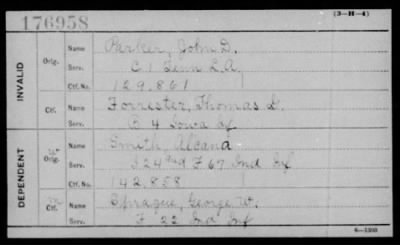 176958
(3-H-4)
INVALID
Orig. Name Parker, John D.
Serv. C 1 Tenn L.A.
Ctf. No. 129,861
Ctf. Name Forrester, Thomas D.
Serv. B 4 Iowa
DEPENDENT
Orig. Name Smith, Alcana
Serv. 67 Ind Inf
Ctf. No. 142,858
Ctf. Name Sprague, George W.
Serv. F 22 Ind Inf